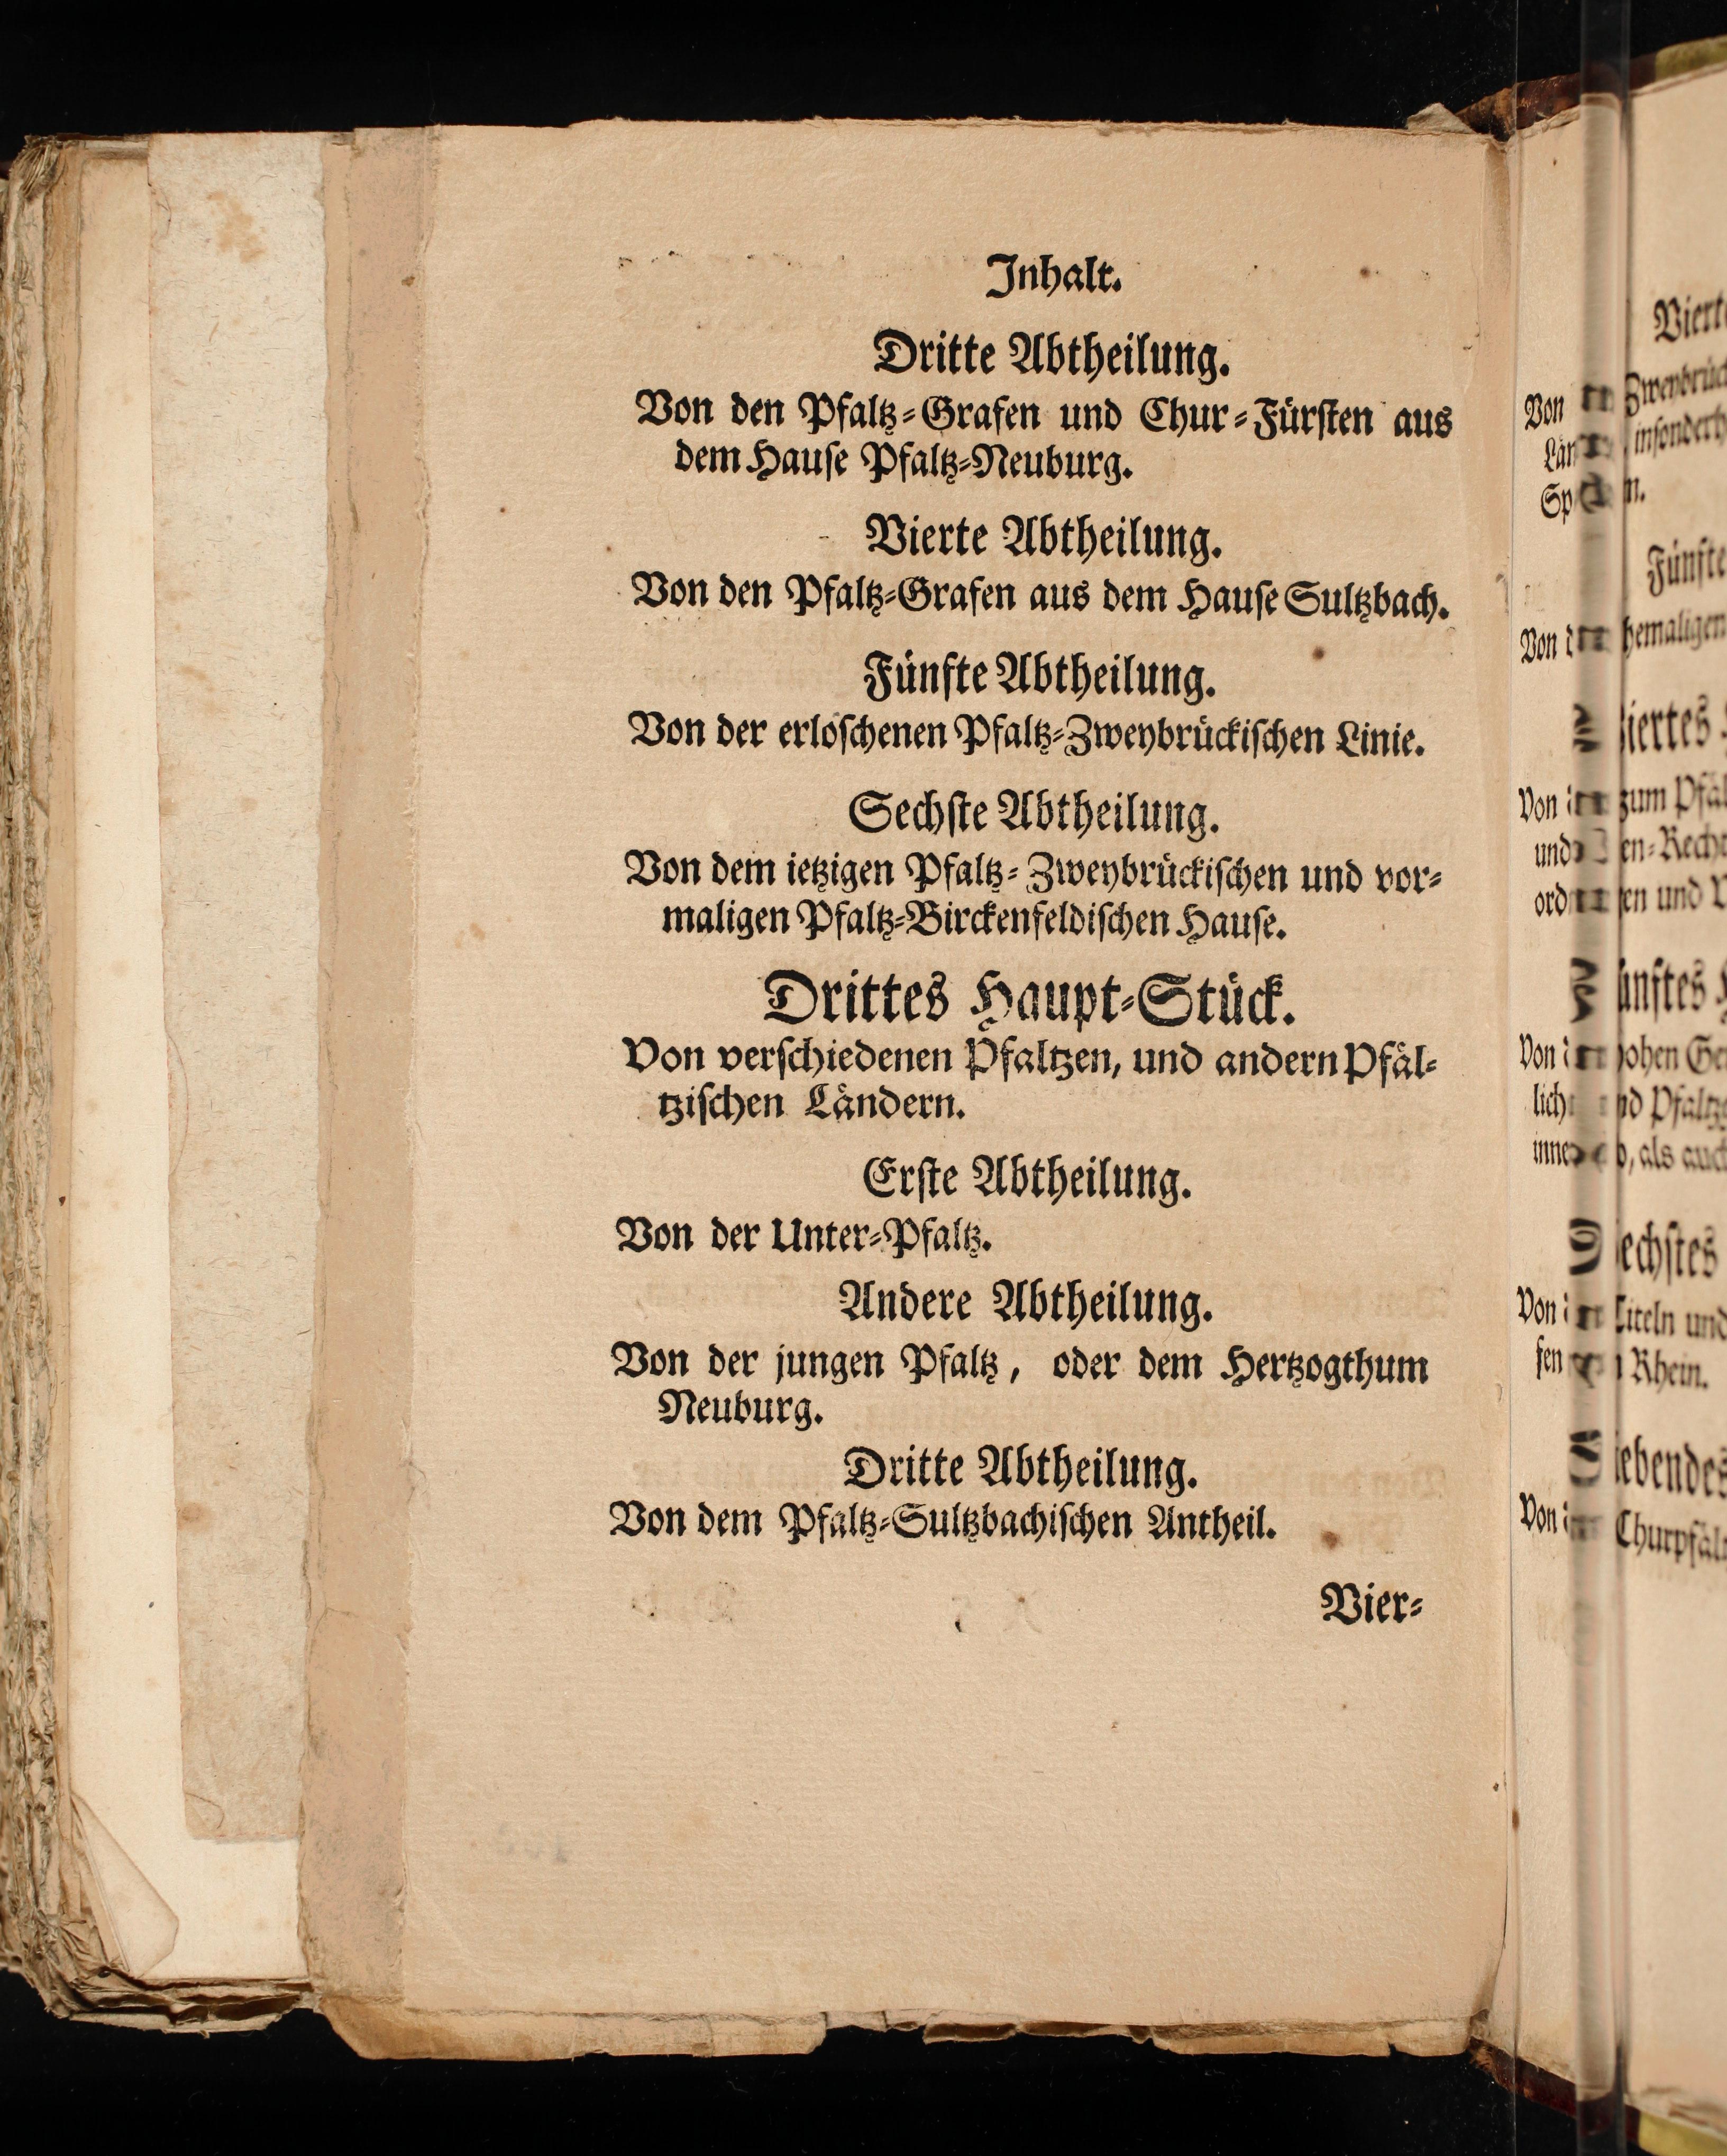 Inhalt.
Dritte Abtheilung.
Von den Pfaltz-Grafen und Chur-Fürsten aus
dem Hause Pfaltz-Neuburg.
Vierte Abtheilung.
Von den Pfaltz-Grafen aus dem Hause Sultzbach.
Fünfte Abtheilung.
Von der erloschenen Pfaltz-Zweybrückischen Linie.
Sechste Abtheilung.
Von dem ietzigen Pfaltz-Zweybrückischen und vor-
maligen Pfaltz-Birckenfeldischen Hause.
Drittes Haupt-Stück.
Von verschiedenen Pfaltzen, und andern Pfäl-
tzischen Ländern.
Erste Abtheilung.
Von der Unter-Pfaltz.
Andere Abtheilung.
Von der jungen Pfaltz, oder dem Hertzogthum
Neuburg.
Dritte Abtheilung.
Von dem Pfaltz-Sultzbachischen Antheil.
Vier-
Von
Fünfte
Von
Von
und
Von
als
Von
und
Rhein.
Von